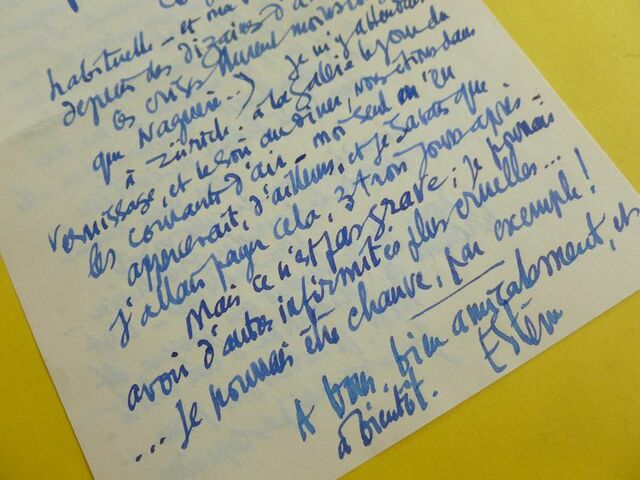 habituelle - et ma
depuis des dizaines d'a
les crises furent moins
que naguère...) Je m'y attendais
à Zürich : à la galerie le jour du
vernissage, et le soir au dîner, nous étions dans
les courants d'air - moi seul m'en
appercevait, d'ailleurs, et je savais que
j'allais payer cela, 3 trois jours après -
Mais ce n'est pas grave ; je pourrais
avoir d'autres infirmités plus cruelles...
... Je pourrais être chauve, par exemple !
A vous, bien amicalement, et
à bientôt.